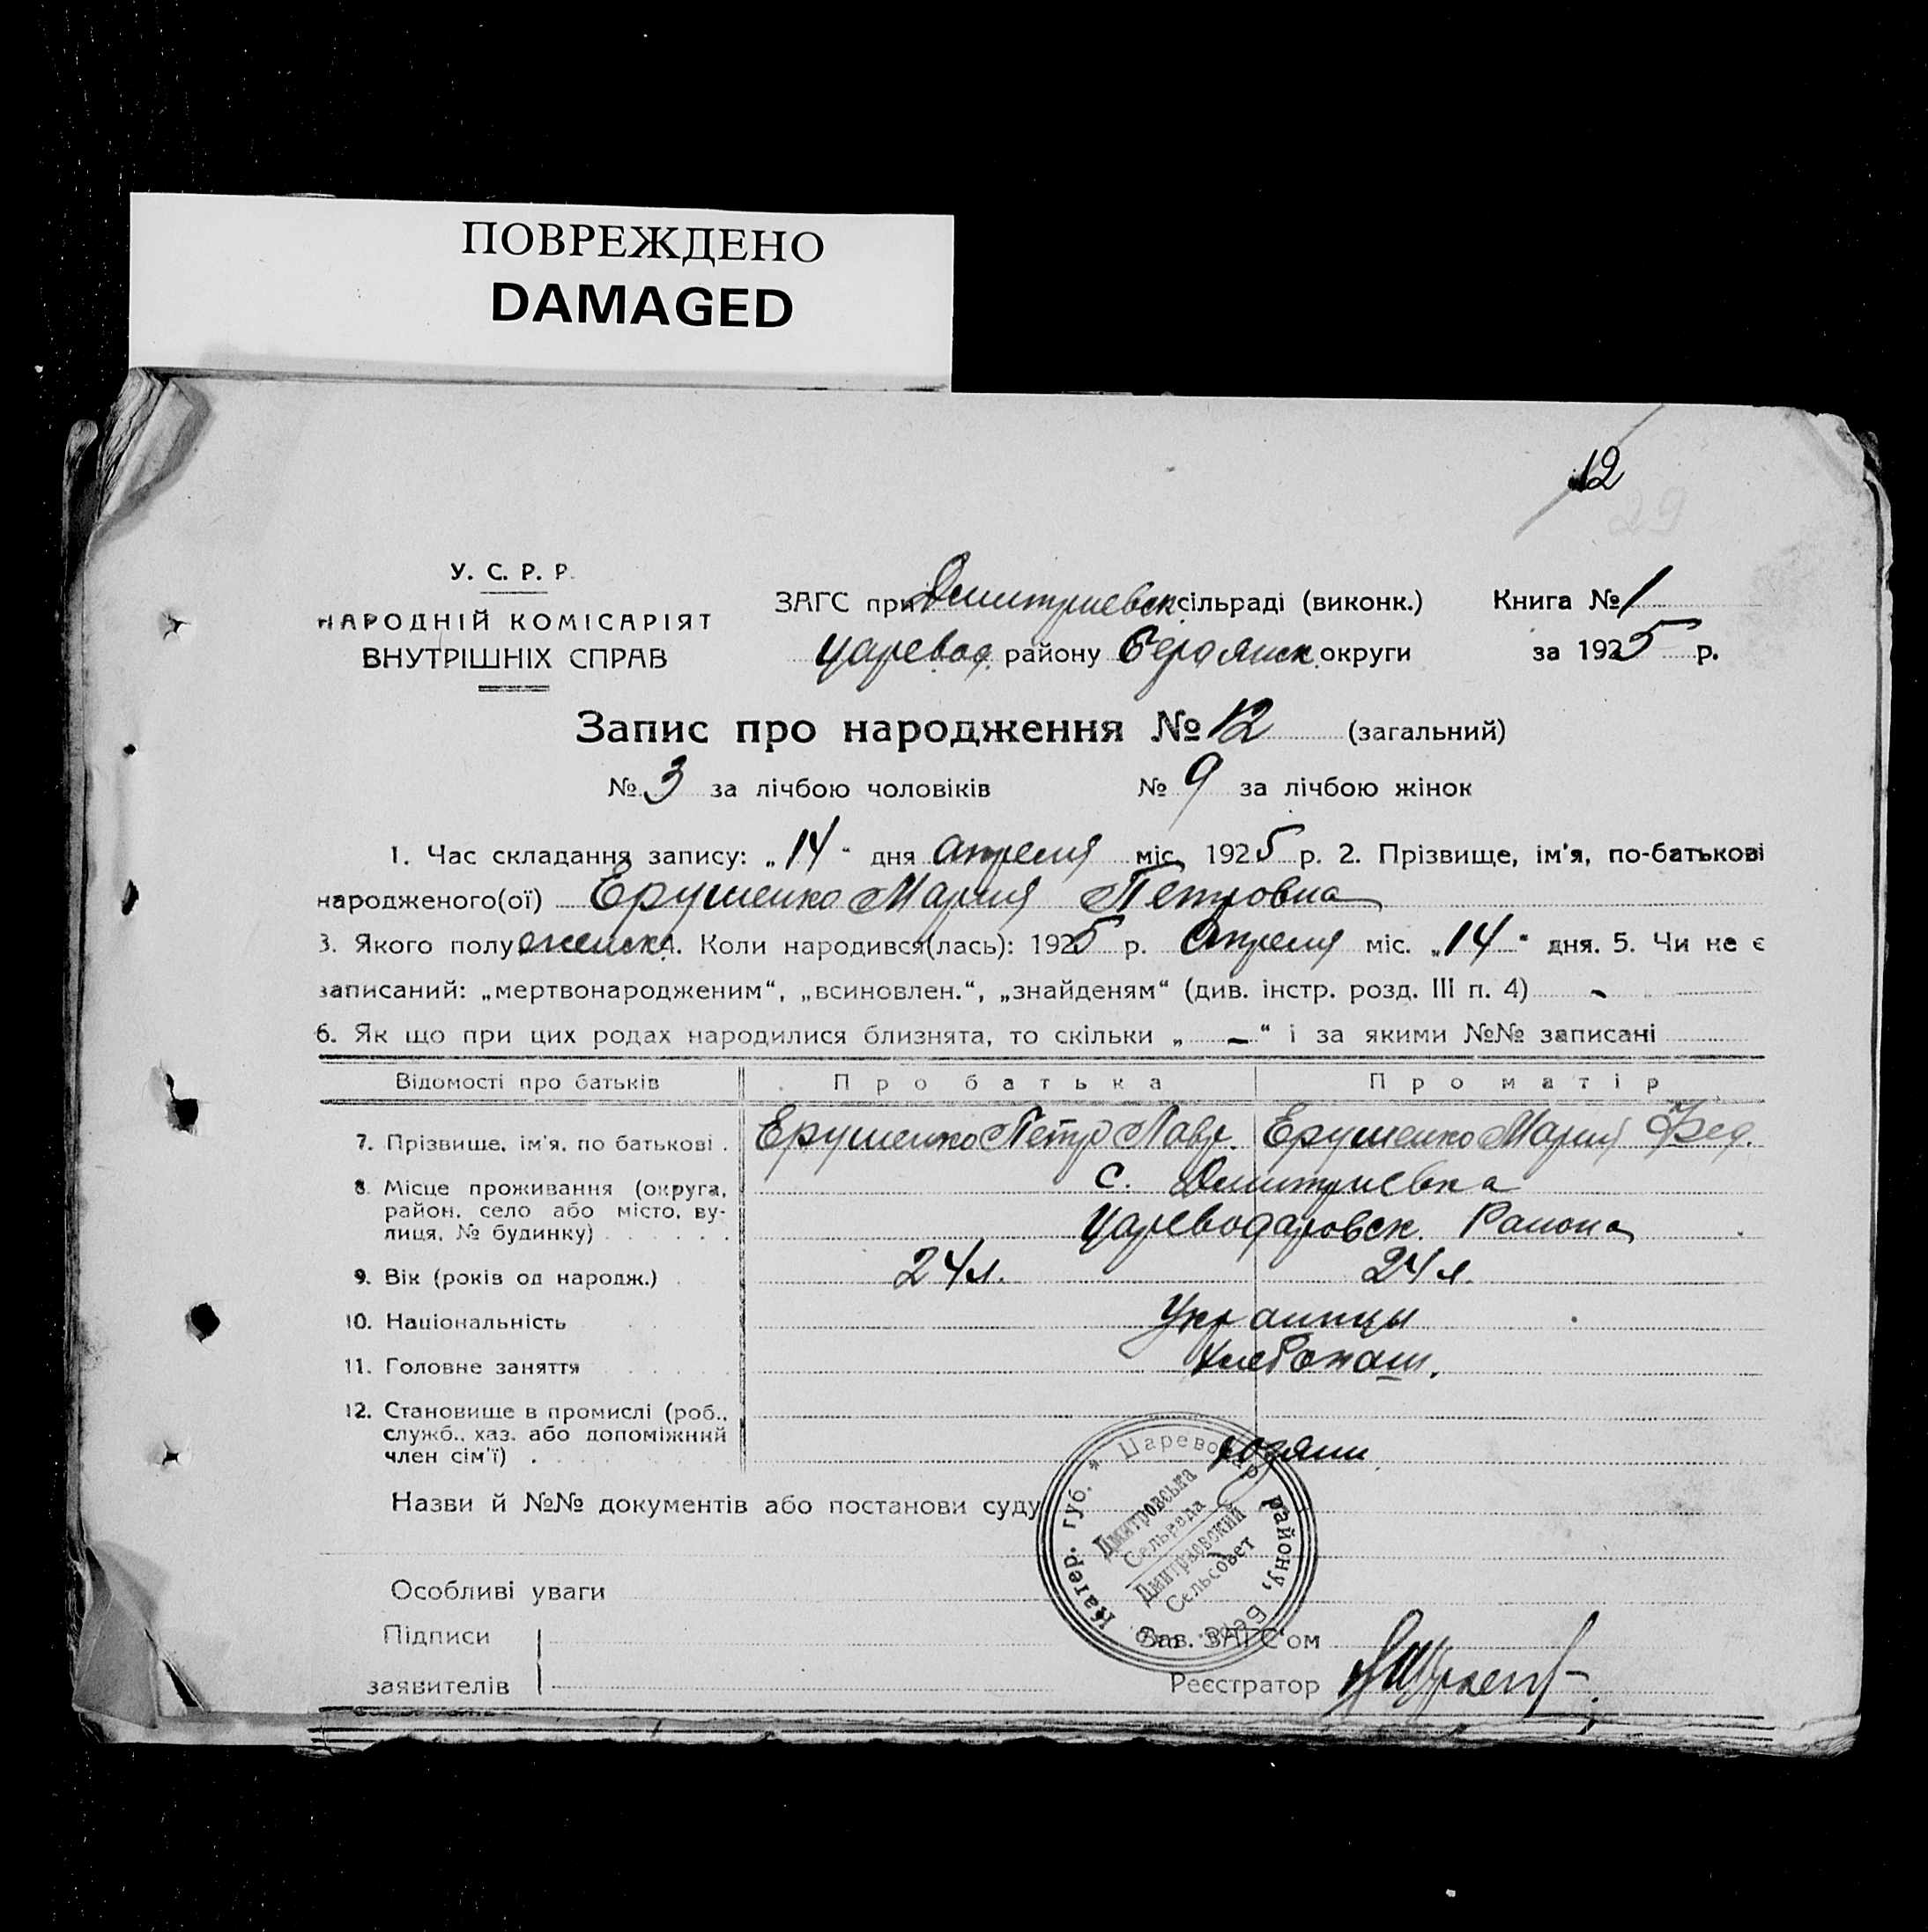 ПОВРЕЖДЕНО
DAMAGED
12
29
У. С. Р. Р.
НАРОДНІЙ КОМІСАРІЯТ
ВНУТРІШНІХ СПРАВ
ЗАГС при Дмитриевск. сільраді (виконк.)
Книга № 1
Царевод. району Бердянск. округи
за 1925 р.
Запис про народження № 12 (загальний)
№ 3 за лічбою чоловіків № 9 за лічбою жінок
1. Час складання запису: „14“ дня апреля міс. 1925 р. 2. Прізвище, ім'я, по-батькові
народженого(ої) Ерушенко Мария Петровна
3. Якого полу женск. 4. Коли народився(лась): 1925 р. Апреля міс. „14“ дня. 5. Чи не є
записаний: „мертвонародженим“, „всиновлен.“, „знайденям“ (див. інстр. розд. III п. 4) -
6. Як що при цих родах народилися близнята, то скільки „-“ і за якими №№ записані
Відомості про батьків Про батька Про матір
7. Прізвище, ім'я, по батькові . Ерушенко Петр Лавр. Ерушенко Мария Фед.
8. Місце проживання (округа, с. Дмитриевка
район, село або місто, ву-
лиця, № будинку) Цареводаровск. Района
9. Вік (років од народж.) 24 л. 24 л.
10. Національність Украинцы
11. Головне заняття хлебопаш.
12. Становище в промислі (роб.,
служб., хаз. або допоміжний
член сім'ї) хозяин
Назви й №№ документів або постанови суду
Катер. губ. * Царевод р району, Берд. окр.
Дмитровська
Сельрада
Дмитриевский
Сельсовет
Особливі уваги
Підписи
заявителів
Зав. ЗАГС'ом
Реєстратор